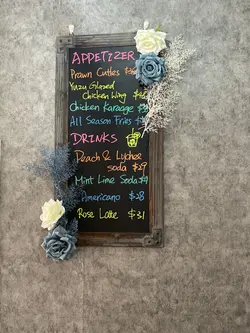 APPETIZER
Prawn Cutles
Yuzu Glazed
Chicken Wing
Chicken Karaage
All Season Fries
DRINKS
Peach & Lychee
soda $29
Mint Lime Soda
Americano $28
Rose Latte $31